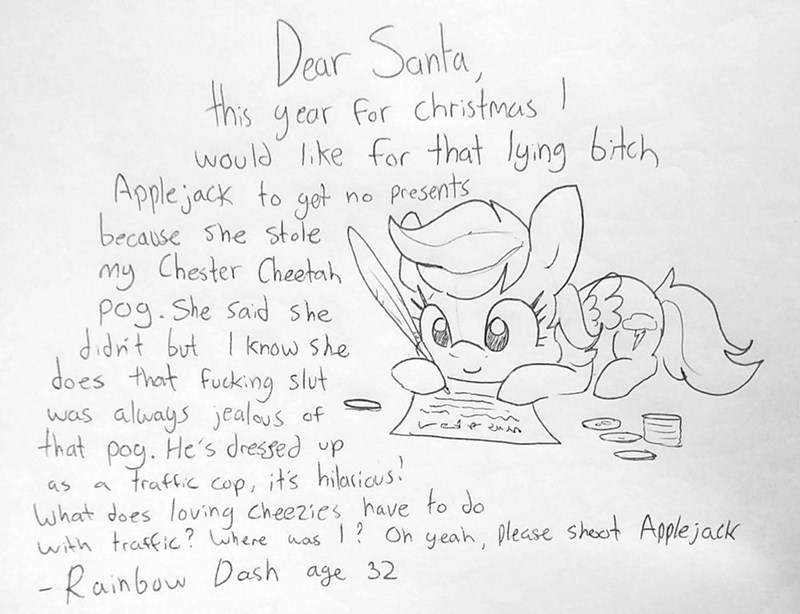 Dear Santa,
this year for christmas I
would like for that lying bitch
Applejack to get no presents
because she stole
my Chester Cheetah
pog. She said she
didn't but I know she
does that fucking slut
was always jealous of
that pog. He's dressed up
as a traffic cop, it's hilarious!
What does loving cheezies have to do
with traffic? Where was I? Oh yeah, please shoot Applejack
- Rainbow Dash age 32